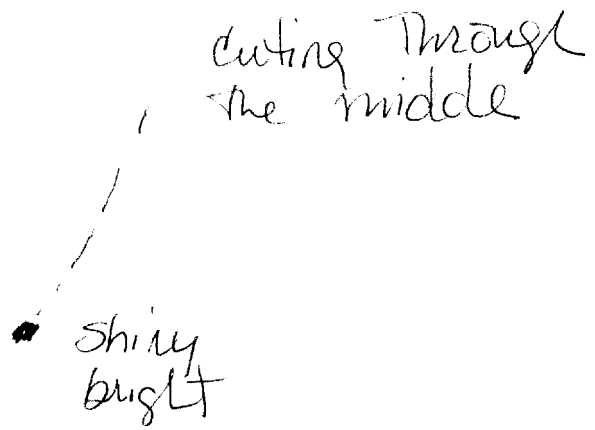 cuting Through
the midde
Shiny
bright